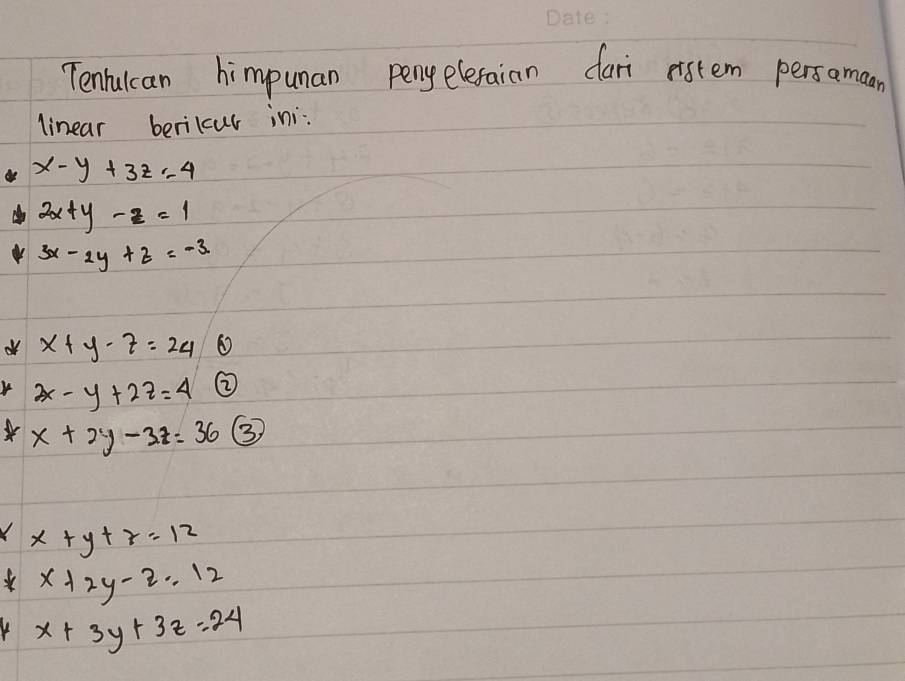 Date :
Tentukan himpunan penyelesaian dari sistem persamaan
linear berikut ini:
* x - y + 3z = 4
* 2x + y - z = 1
* 3x - 2y + z = -3.
* x + y - z = 24 ①
* 2x - y + 2z = 4 ②
* x + 2y - 3z = 36 ③
* x + y + z = 12
* x + 2y - z = 12
* x + 3y + 3z = 24